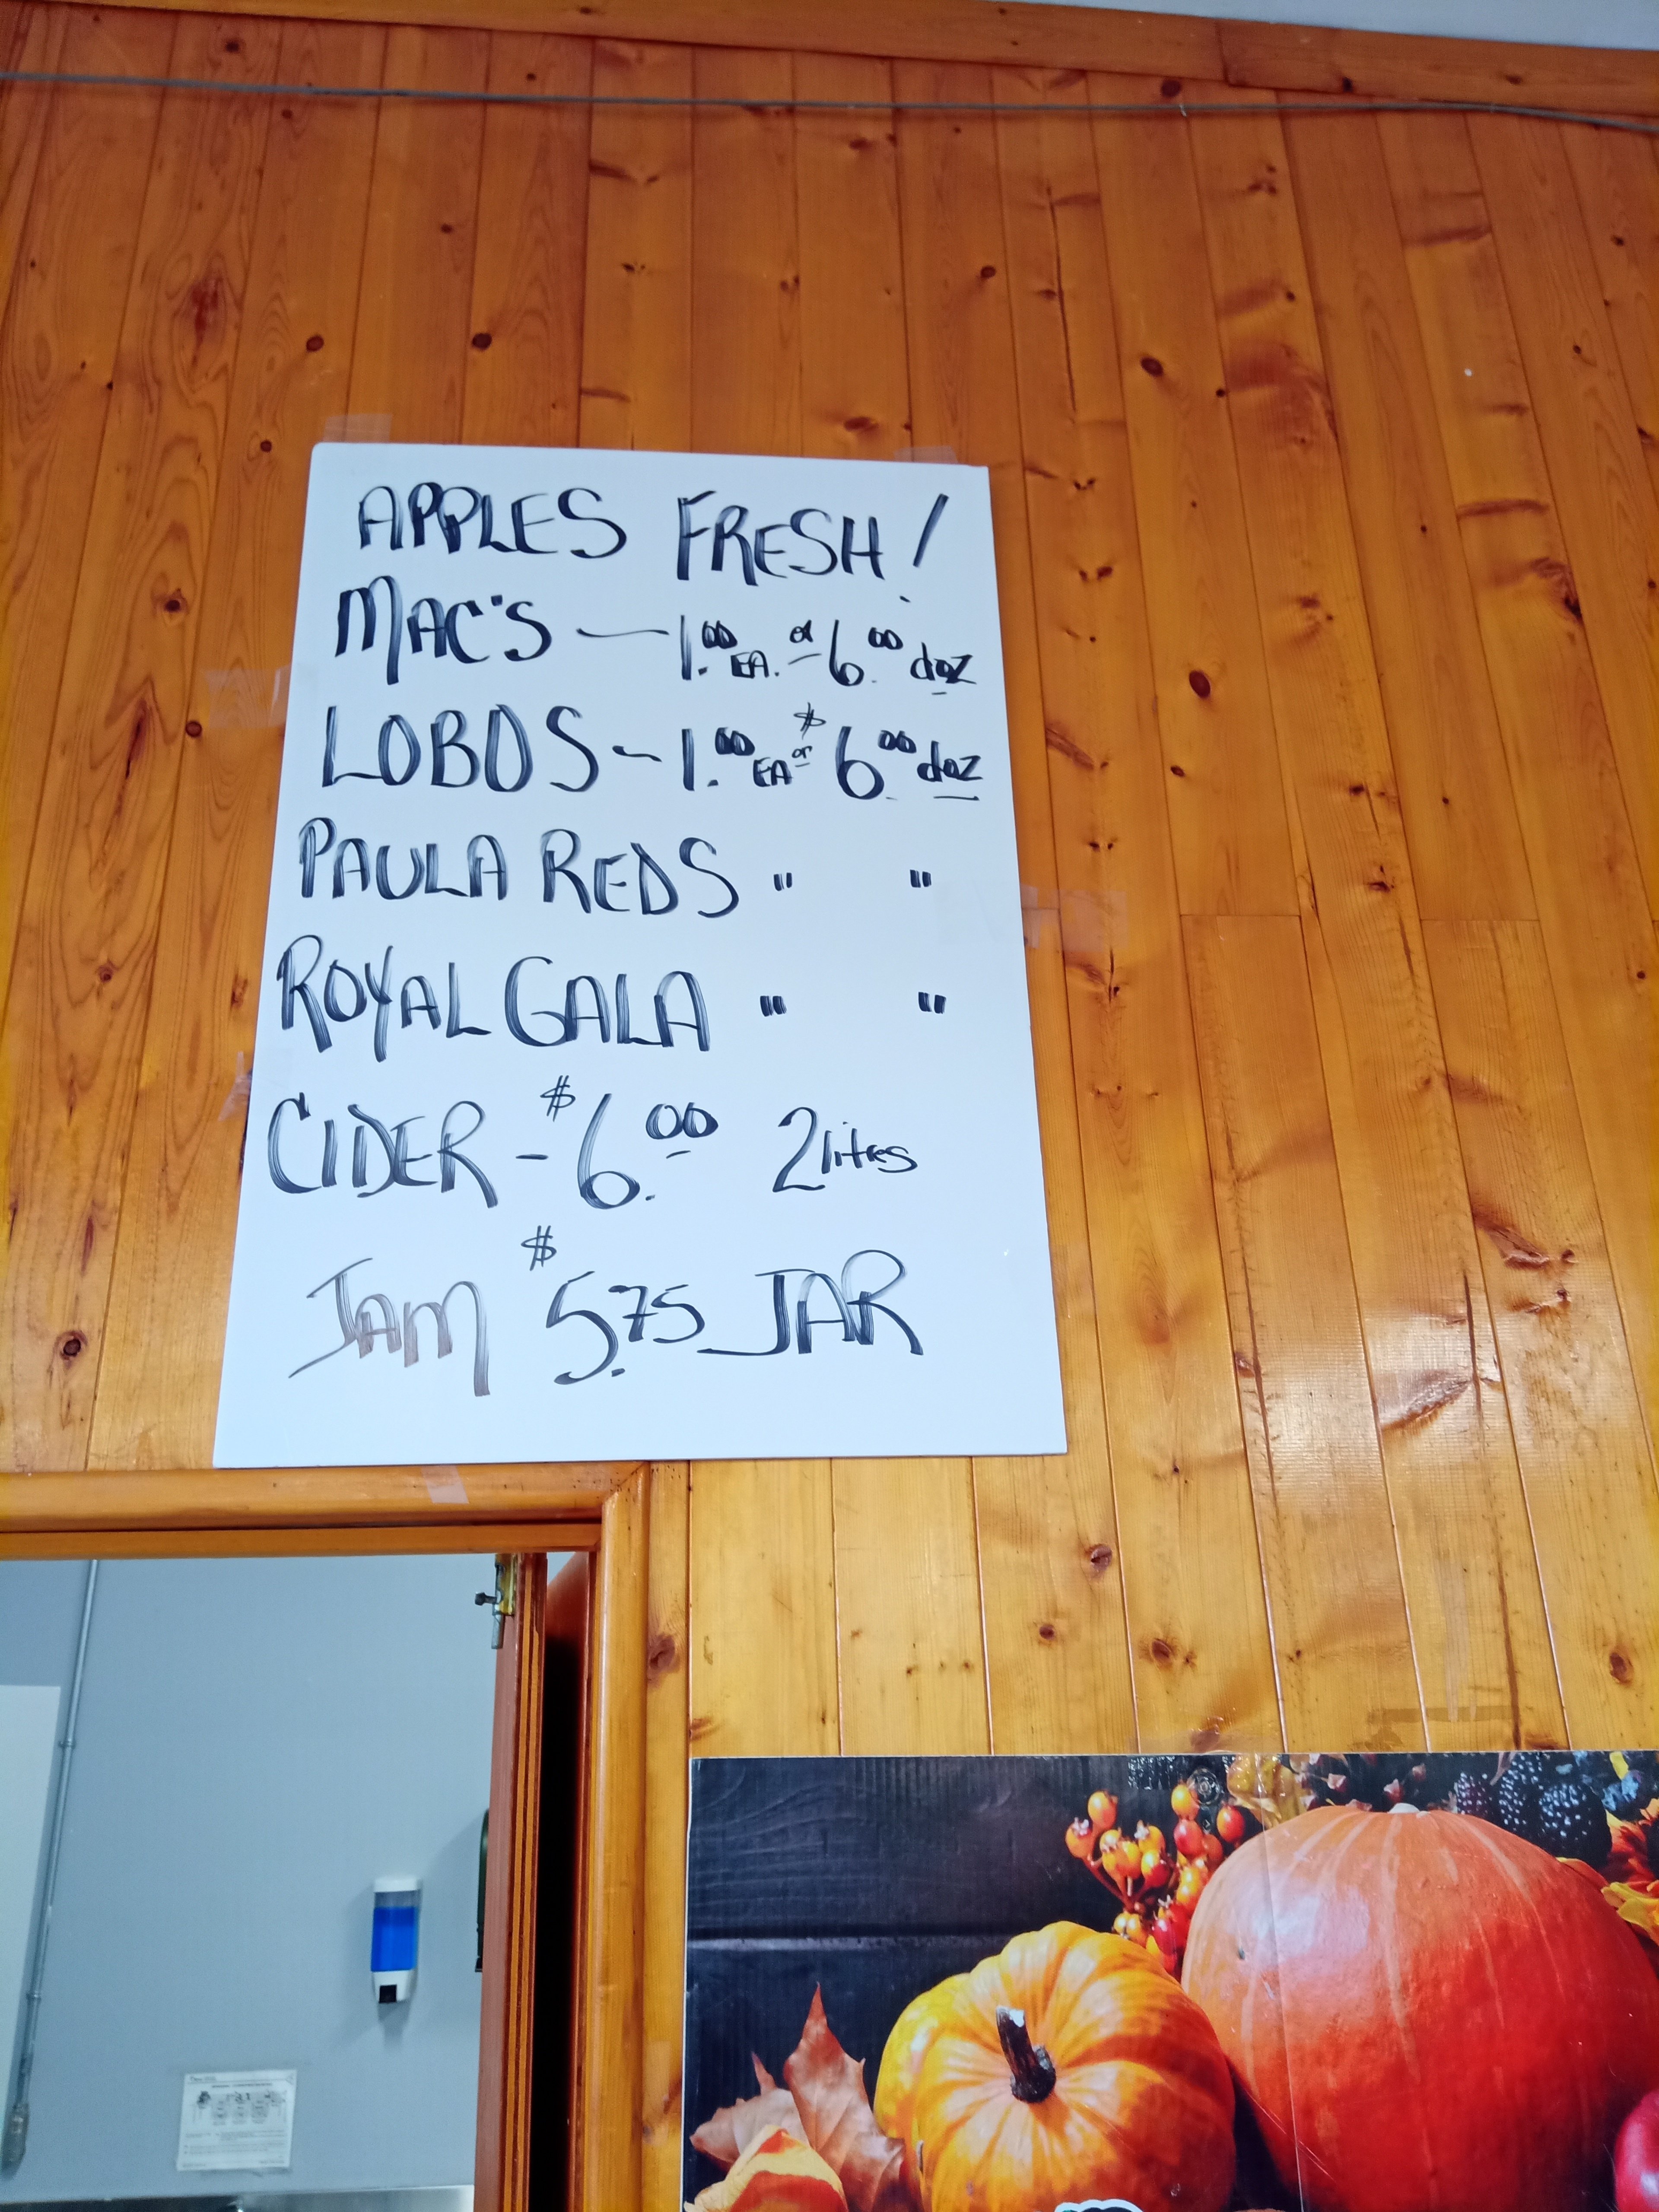 APPLES FRESH!
MAC'S — 1.00 EA. or 6.00 doz
LOBOS - 1.00 EA or $6.00 doz
PAULA REDS " "
ROYAL GALA " "
CIDER - $6.00 2 litres
JAM $5.75 JAR